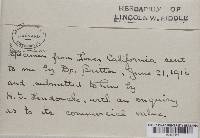 HERBARIUM OF
LINCOLN W. RIDDLE
from Jones California sent
to me by Dr. Britton, June 21, 1916
and submitted to him by
with an enquiry
as to its commercial value.